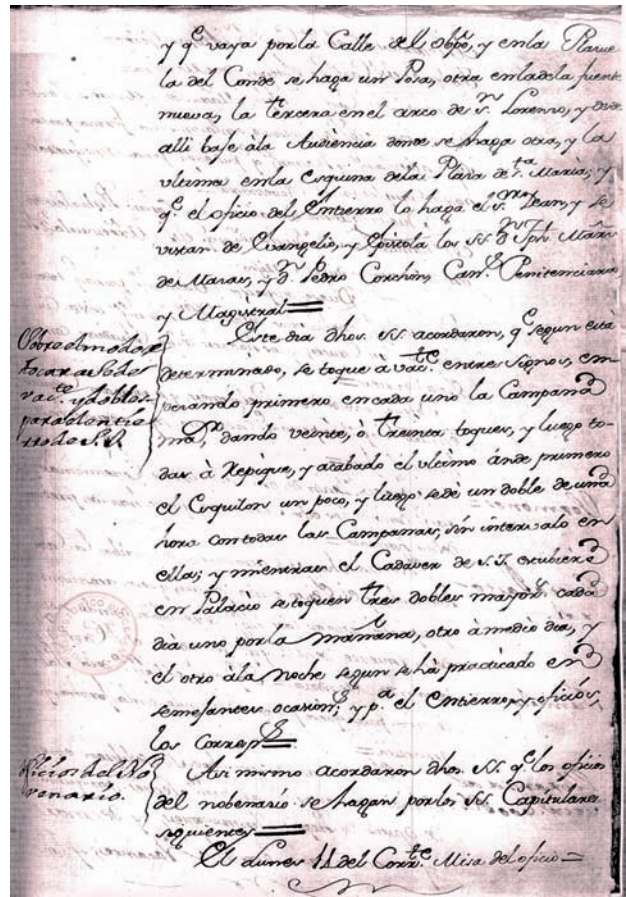 y q.e vaya por la Calle del Obpo, y en la Plazue
la del Conde se haga un Posa, otra en la de la fuente
nueva, la tercera en el arco de S.n Lorenzo, y desde
alli baje àla Audiencia donde se haga otra, y la
vltima en la Esquina dela Plaza de S.ta Maria; y
q.e el oficio del Entierro lo haga el S.or Dean, y se
vistan de Evangelio, y Epistola los SS. D.n Jph. Mañ.
de Maraz, y D.n Pedro Corchin, Can.s Penitenciario
y Magistral=
Sobre el modo de
tocar a Sede
vac.te y dobles
para el entie
rro de S.I.
Este dia dhos. SS. acordaron, q.e segun está
determinado, se toque à vac.te entre Signos, em
pezando primero en cada uno la Campana
ma.or dando veinte, ò treinta toques, y luego to-
das à Repique, y acabado el vltimo ánde primero
el Esquilon un poco, y luego se dè un doble de una
hora con todas las Campanas, sin intervalo en
ellas; y mientras el Cadaver de S.I. estubiere
en Palacio se toquen tres dobles mayor.s cada
dia uno por la mañana, otro à medio dia, y
el otro àla noche segun se hà practicado en
semejantes ocasion.s y p.a el Entierro, y oficios,
los Corresp.s=
Oficios del No
venario.
Asi mismo acordaron dhos. SS. q.e los oficios
del nobenario se hagan por los SS. Capitulares
siguientes=
El Lunes 11 del Corr.te Misa del oficio=